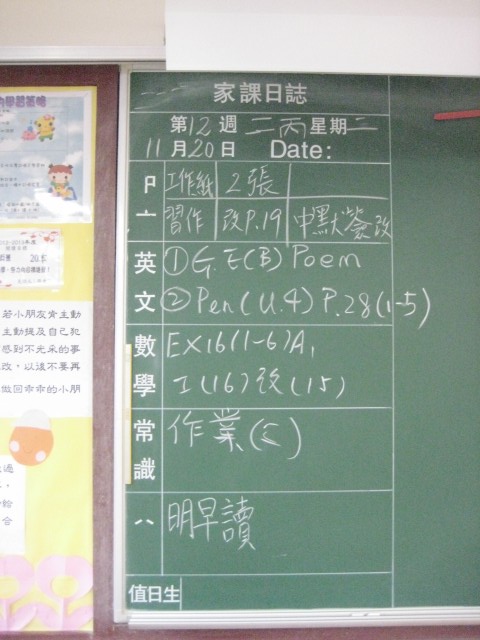 家課日誌
第12週 二丙 星期二
11月20日 Date:
工作紙 2張
習作 改P.19 中默簽改
英文 ① G.E(B) Poem
② Pen (U.4) P.28(1-5)
數學 EX16(1-6)A,
I(16) 改(15)
常識 作業(5)
八 明早讀
值日生
若小朋友肯主動
主動提及自己犯
感到不光采的事
改,以後不要再
做回乖乖的小朋